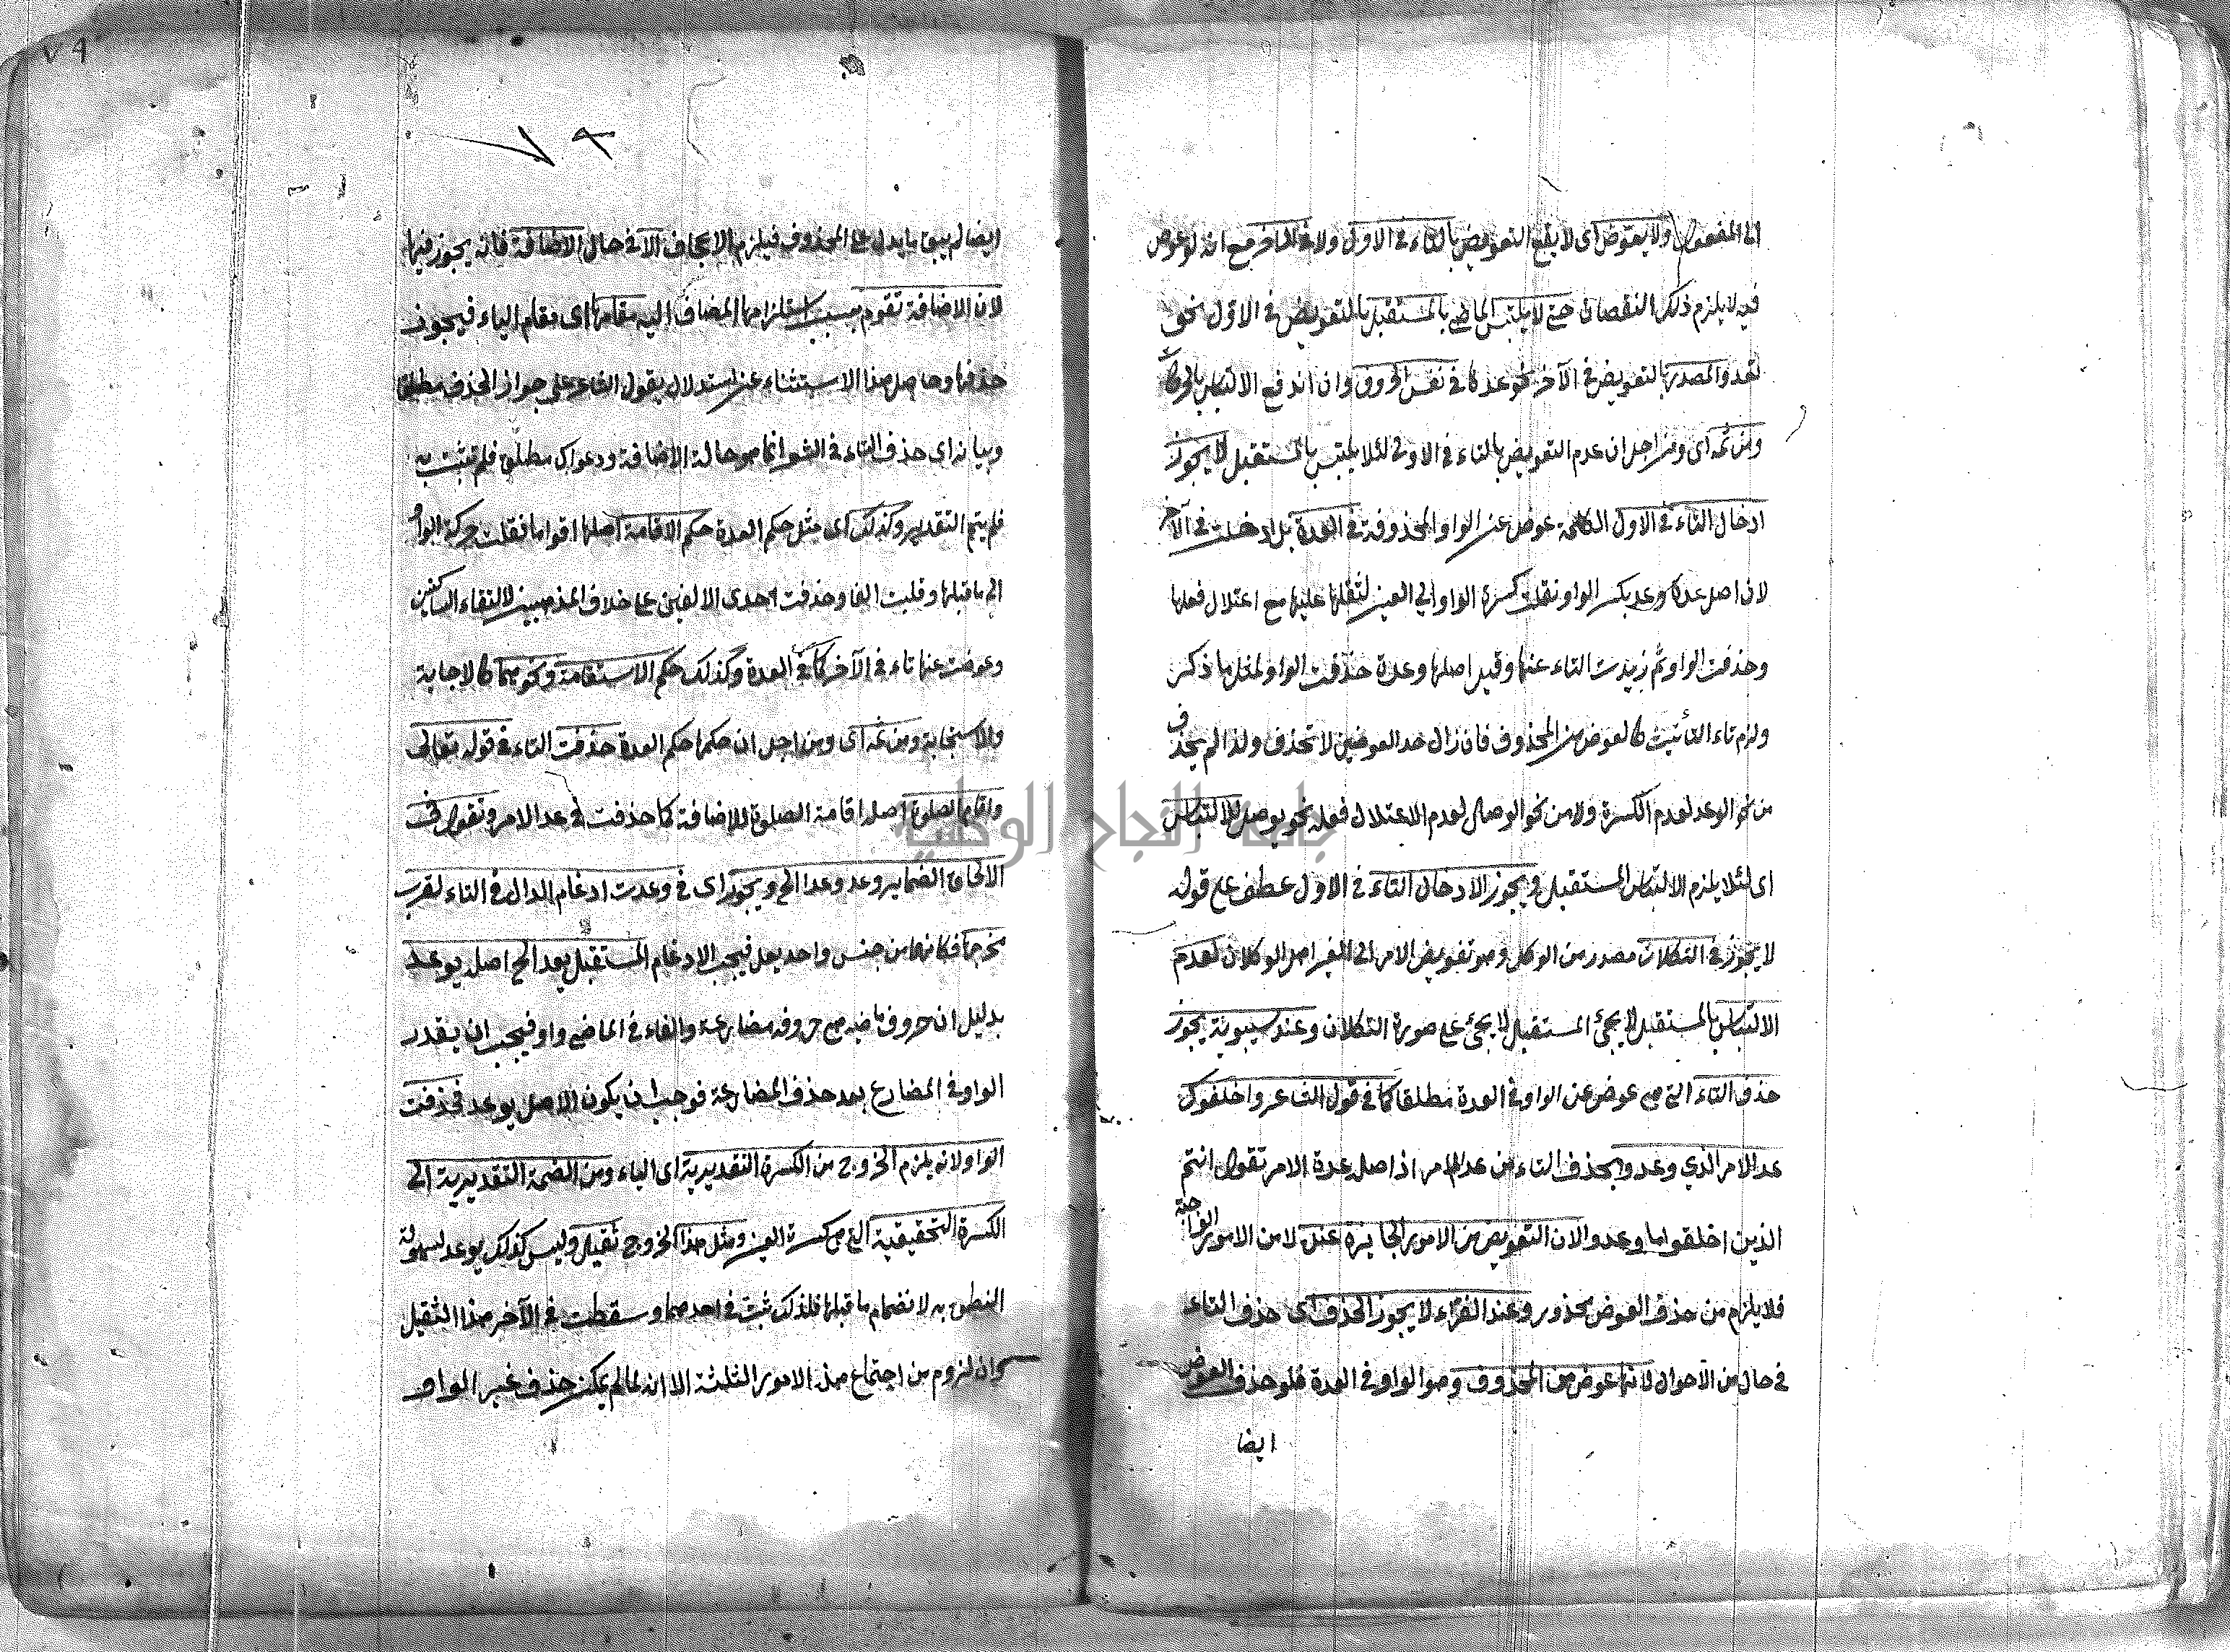 الى المفعول ولا يعوض اى لا يقع التعويض بالتاء فى الاول ولا فى الآخر مع انه لو عوض
فيه لا يلزم ذلك النقصان حتى لا يلتبس الماضى بالمستقبل بالتعويض فى الاول نحو
تعد والمصدر بالتعويض فى الآخر نحو عدة فى نفس الحروف وان اندفع الالتباس بالحركات
ومن ثمه اى ومن اجل ان عدم التعويض بالتاء فى الاول لئلا يلتبس بالمستقبل لا يجوز
ادخال التاء فى الاول الكلمة عوض عن الواو المحذوفة فى العدة بل ادخلت فى الآخر
لان اصل عدة وعد بكسر الواو نقلت كسرة الواو الى العين لثقلها عليها مع اعتلال فعلها
وحذفت الواو ثم زيدت التاء عنها وقيل اصلها وعدة حذفت الواو لمثل ما ذكر
ولزم تاء التأنيث كالعوض من المحذوف فان زال احد العوضين لا تحذف ولذا لم يحذف
من نحو الوعد لعدم الكسرة ولا من نحو الوصال لعدم الاعتلال فعله نحو يوصل للالتباس
اى لئلا يلزم الالتباس المستقبل ويجوز الادخال التاء فى الاول عطف على قوله
لا يجوز فى التكلان مصدر من الوكل وهو تفويض الامر الى الغير اصل الوكلان لعدم
الالتباس بالمستقبل لا يجئ المستقبل لا يجئ على صورة التكلان وعند سيبويه يجوز
حذف التاء التى هى عوض عن الواو فى العدة مطلقا كما فى قول الشاعر واخلفوك
عد الامر الذي وعدوا بحذف التاء من عد الامر اذ اصل عدة الامر تقول انتم
الذين اخلفوا ما وعدوا لان التعويض من الامور الجايزة عنده لا من الامور الواجبة
فلا يلزم من حذف العوض محذور وعند الفراء لا يجوز الحذف اى حذف التاء
فى حال من الاحوال لانها عوض من المحذوف وهو الواو فى العدة فلو حذف العوض
ايضا
٧٩
ايضا لم يبق ما يدل على المحذوف فيلزم الاجحاف الا فى حال الاضافة فانه يجوز فيها
لان الاضافة تقوم بسبب استلزامها المضاف اليه مقامها اى مقام التاء فيجوز
حذفها وحاصل هذا الاستثناء عن استدلال بقول الشاعر على جواز الحذف مطلقا
وبيانه اى حذف التاء فى الشعر انما هو حالة الاضافة ودعواك مطلق فلم تثبت به
فلم يتم التقدير وكذلك اى مثل حكم العدة حكم الاقامة اصلها اقواما فنقلت حركة الواو
الى ما قبلها وقلبت الفا وحذفت احدى الالفين على خلاف المذهبين لالتقاء الساكنين
وعوضت عنها تاء فى الآخر كما فى العدة وكذلك حكم الاستقامة ونحوهما كالاجابة
والاستجابة ومن ثمه اى ومن اجل ان حكمها حكم العدة حذفت التاء فى قوله تعالى
واقام الصلوة اصله اقامة الصلوة للاضافة كما حذفت فى عد الامر وتقول فى
الالحاق الضماير وعد وعدا الخ ويجوز اى فى وعدت ادغام الدال فى التاء لقرب
مخرجها فكانهما من جنس واحد فيجب الادغام المستقبل يعد الخ اصله يوعد
بدليل ان حروف ماضيه مع حروفه مضارعة والفاء فى الماضى واو فيجب ان يقدر
الواو فى المضارع بعد حذف المضارعة فوجب ان يكون الاصل يوعد فحذفت
الواو لانه يلزم الخروج من الكسرة التقديرية اى الياء ومن الضمة التقديرية الى
الكسرة التحقيقية التى هى كسرة العين ومثل هذا الخروج ثقيل وليس كذلك يوعد لسهولة
النطق به لانضمام ما قبلها فلذلك ثبت فى احدهما وسقطت فى الآخر هذا الثقيل
وان لزوم من اجتماع هذه الامور الثلثة الا انه لما لم يمكن حذف غير الواو
جامعة النجاح الوطنية